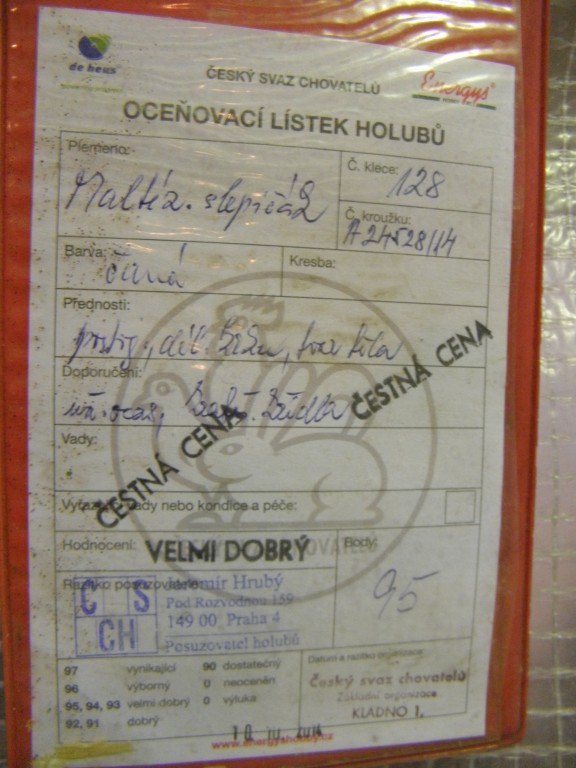 de heus
ČESKÝ SVAZ CHOVATELŮ
Energys
OCEŇOVACÍ LÍSTEK HOLUBŮ
Plemeno:
Maltéz. slepičák
Č. klece: 128
Č. kroužku:
A 24528/14
Barva:
černá
Kresba:
Přednosti:
postoj, dél. krku, tvar těla
Doporučení:
ČESTNÁ CENA
Vady:
ČESTNÁ CENA
vady nebo kondice a péče:
Hodnocení: VELMI DOBRÝ
Body:
95
Razítko posuzovatele:
C S
CH
Hrubý
Pod Rozvodnou 159
149 00 Praha 4
Posuzovatel holubů
97 vynikající 90 dostatečný
96 výborný 0 neoceněn
95, 94, 93 velmi dobrý 0 výluka
92, 91 dobrý
Datum a razítko organizace:
Český svaz chovatelů
Základní organizace
KLADNO 1.
www.energyshobby.cz